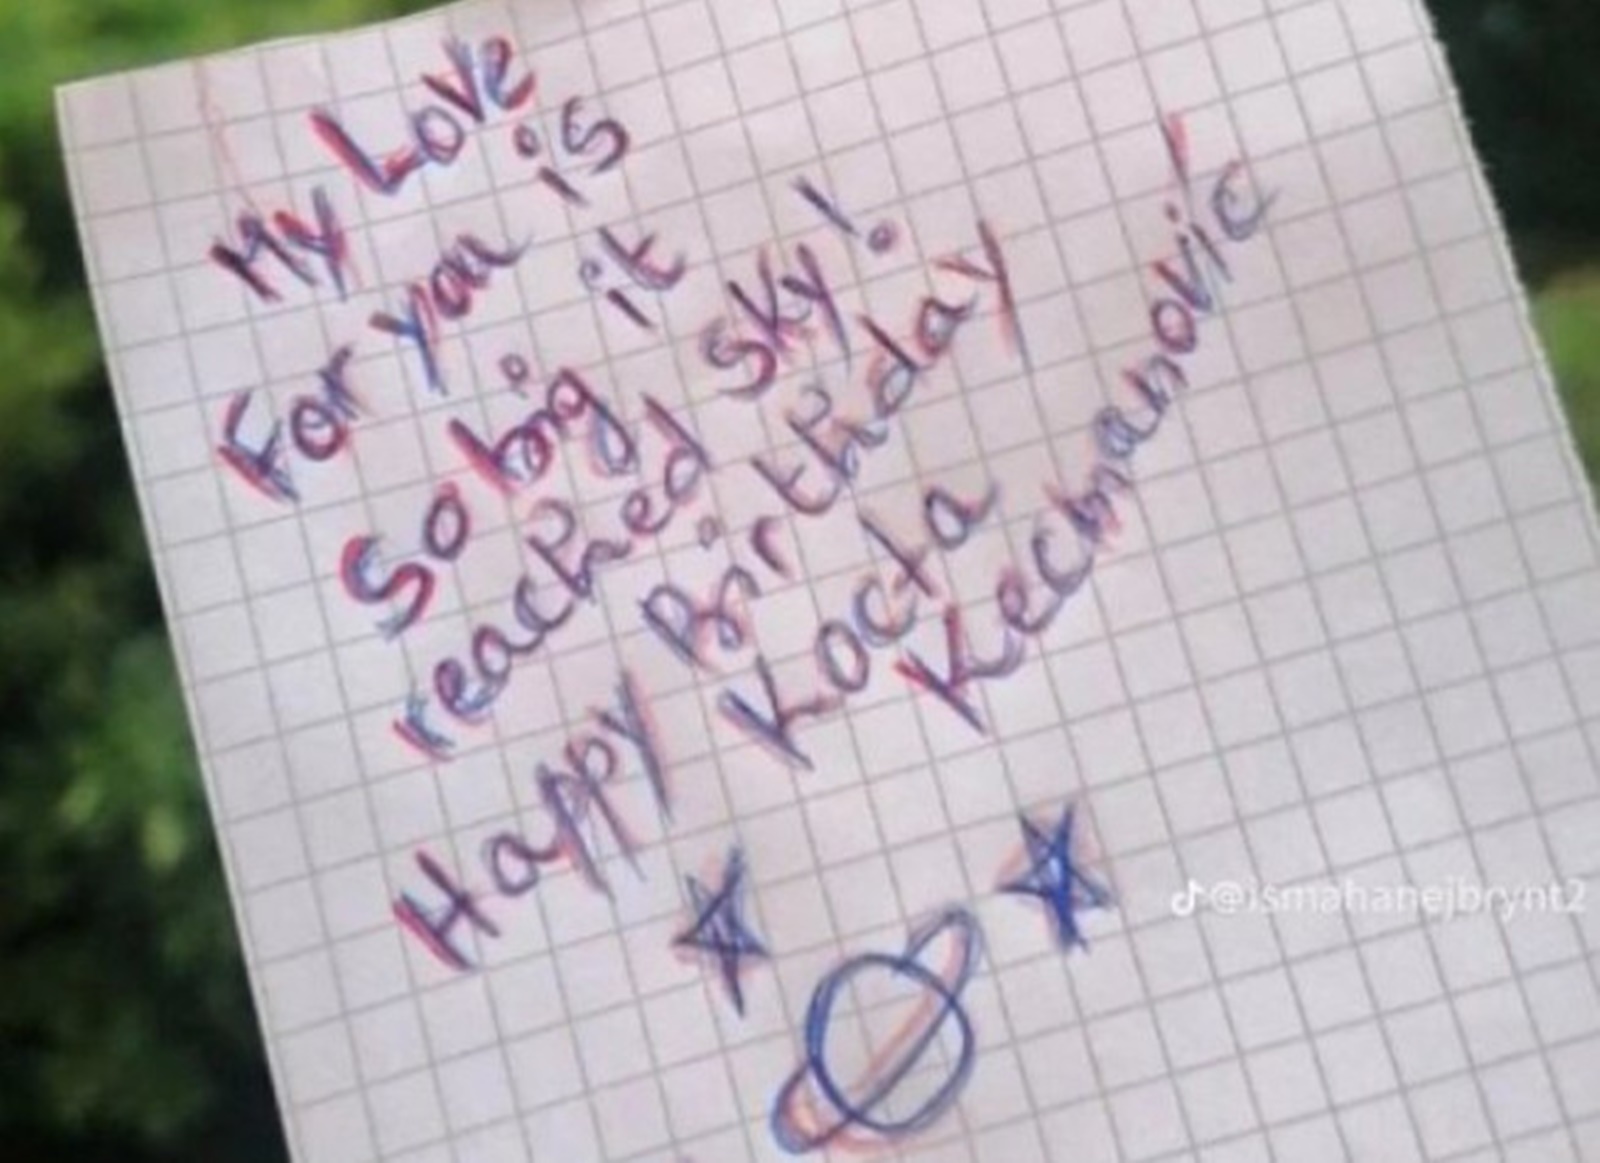 My Love
For you is
So big it
reached sky!
Happy Birthday
Kocta
Kecmanović
@ismahanejbrynt2